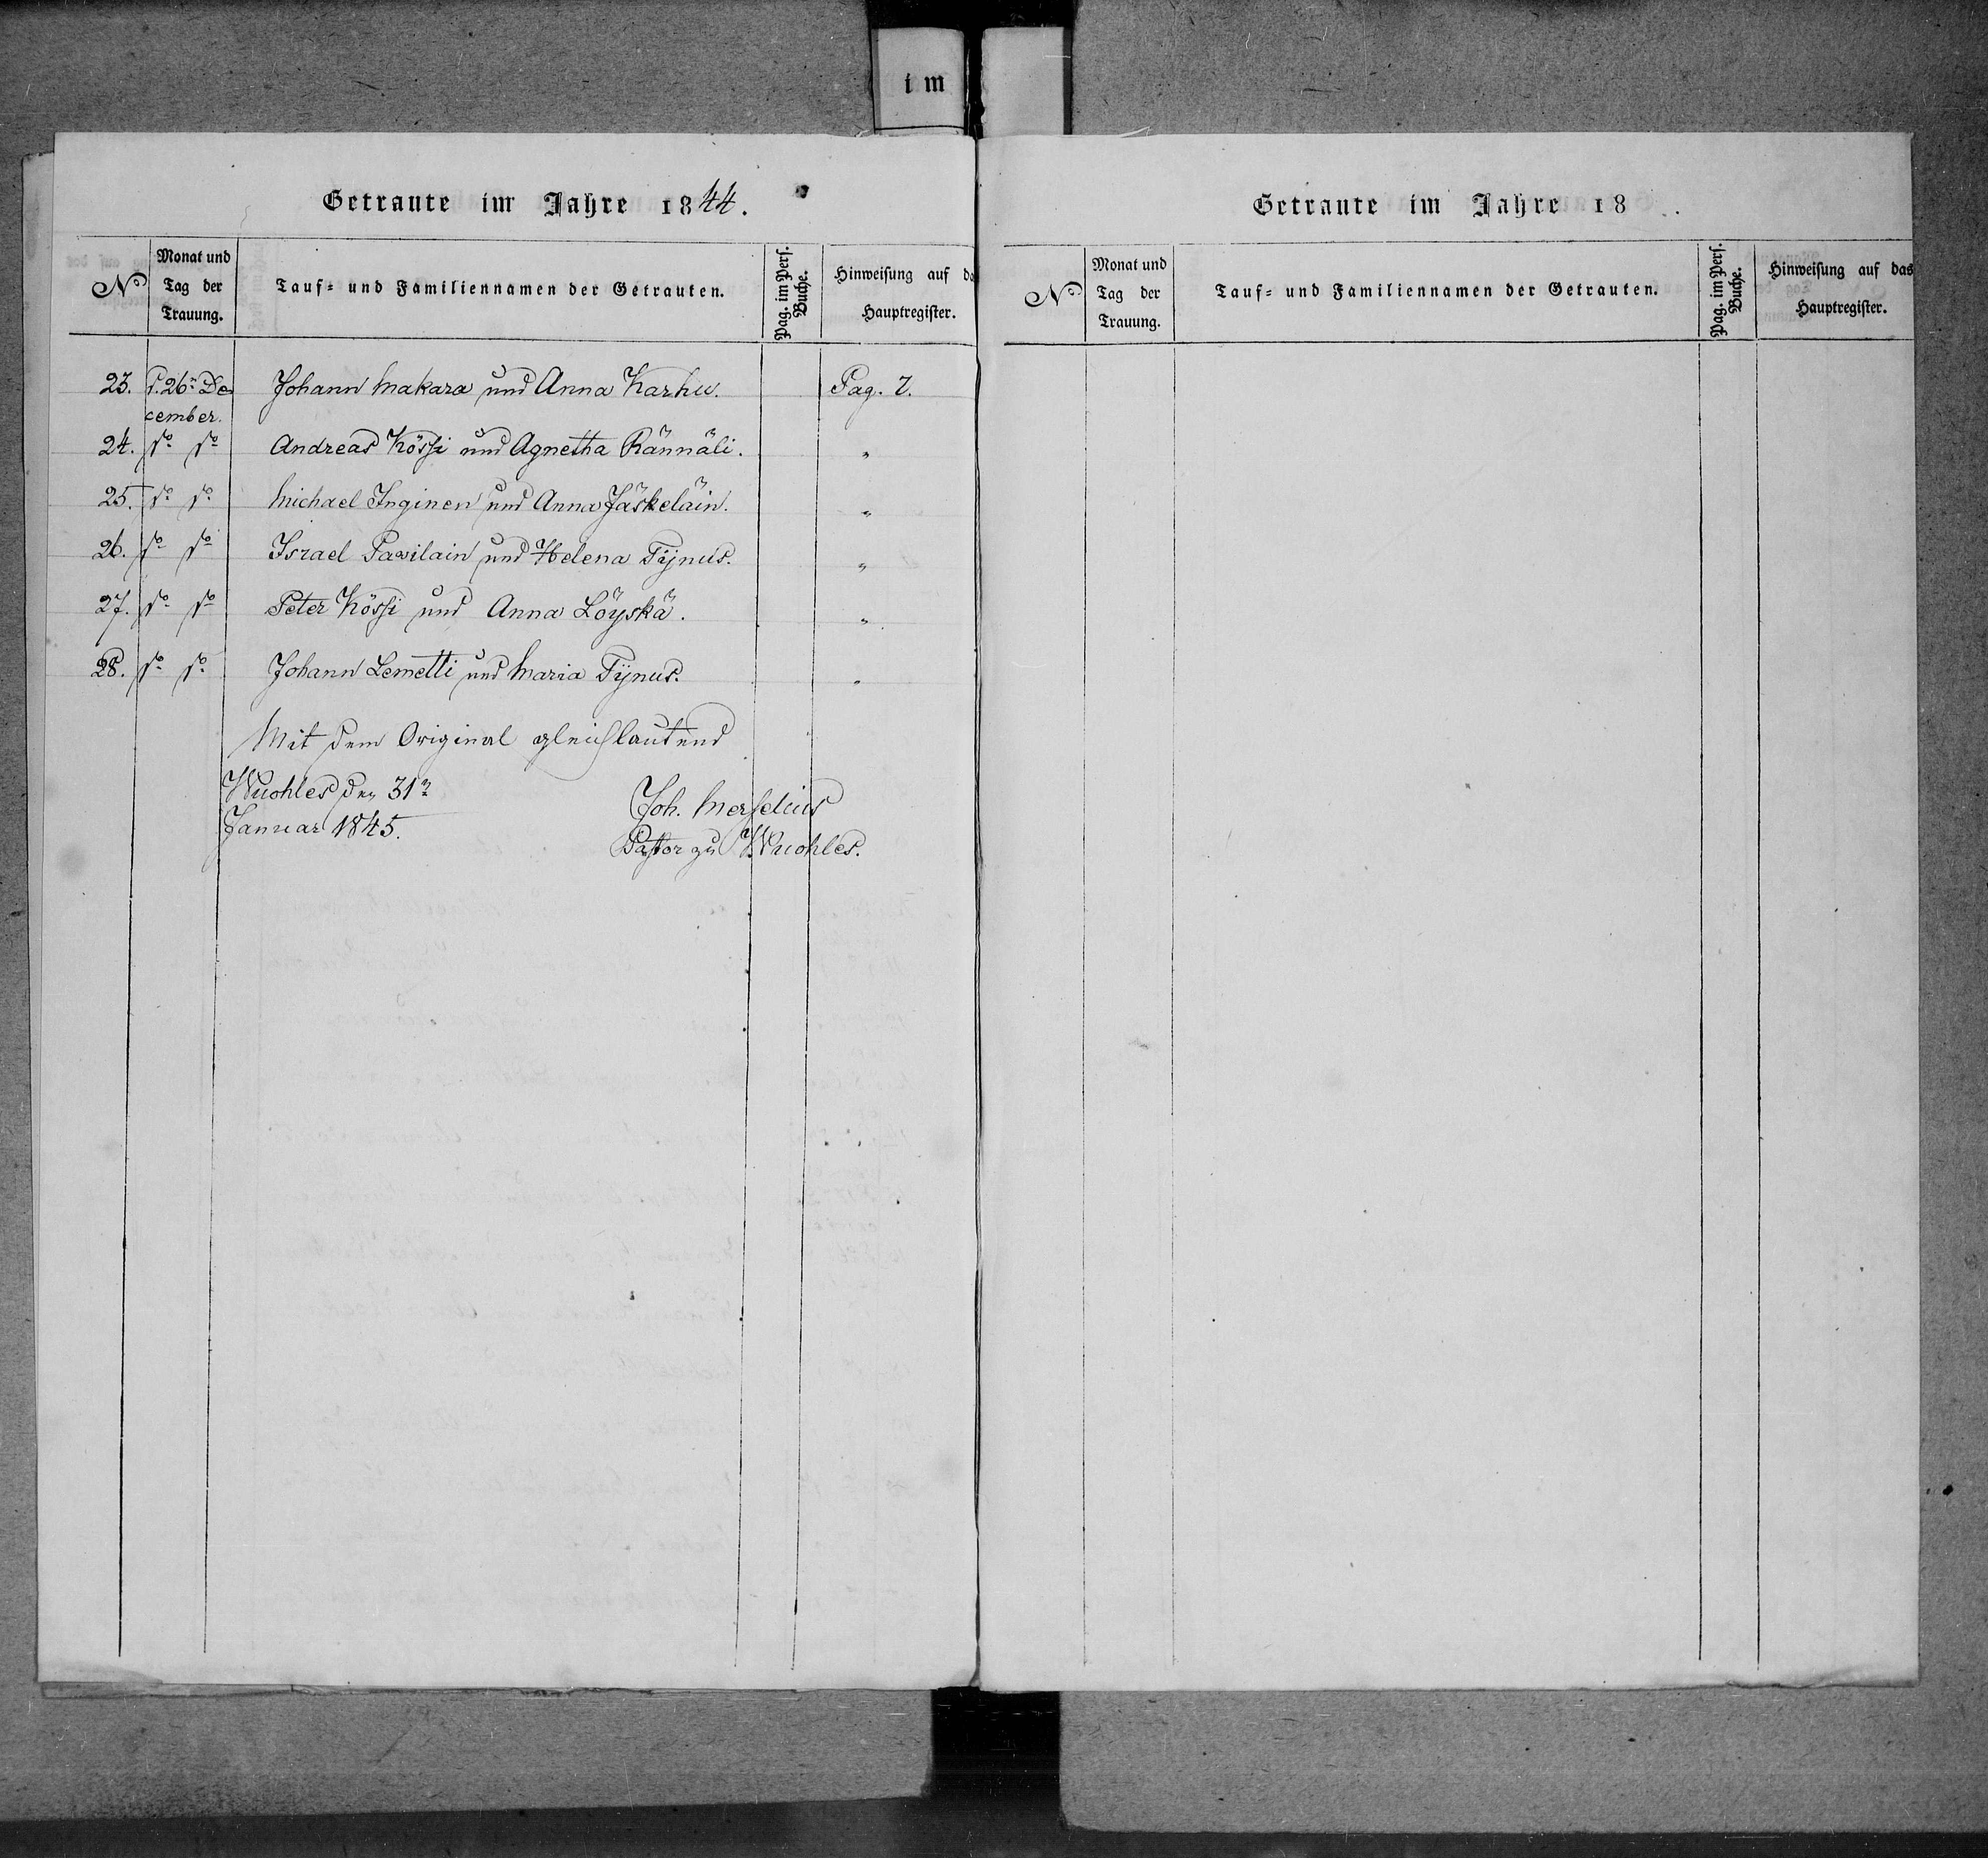 im
Getraute im Jahre 1844.
No Monat und Tag der Trauung. Tauf- und Familiennamen der Getrauten. Pag. im Pers. Buche. Hinweisung auf da Hauptregister.
23. d. 26n De Johann Makara und Anna Karhu. Pag. 7.
cember.
24. do do Andreas Kössi und Agnetha Rännäli. "
25. do do Michael Inginen und Anna Jäskeläin. "
26. do do Israel Pawilain und Helena Tÿnus. "
27. do do Peter Kössi und Anna Löyskä. "
28. do do Johann Lemetti und Maria Tÿnus. "
Mit dem Original gleichlautend
Wuohles den 31n
Januar 1845.
Joh.
Pastor zu Wuohles.
Getraute im Jahre 18 .
No Monat und Tag der Trauung. Tauf- und Familiennamen der Getrauten. Pag. im Pers. Buche. Hinweisung auf das Hauptregister.